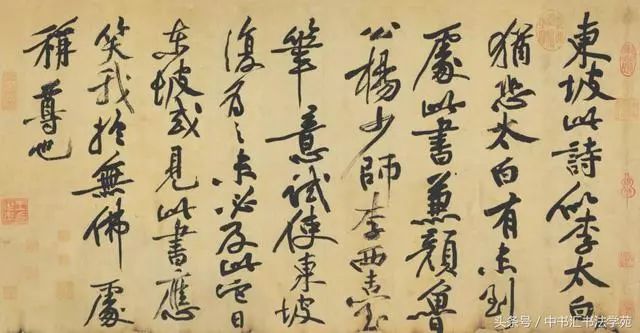 東坡此詩似李太白
猶恐太白有未到
處此書兼顏魯
公楊少師李西臺
筆意試使東坡
復為之未必及此它日
東坡或見此書應
笑我於無佛處
稱尊也
头条号 / 中书汇书法学苑